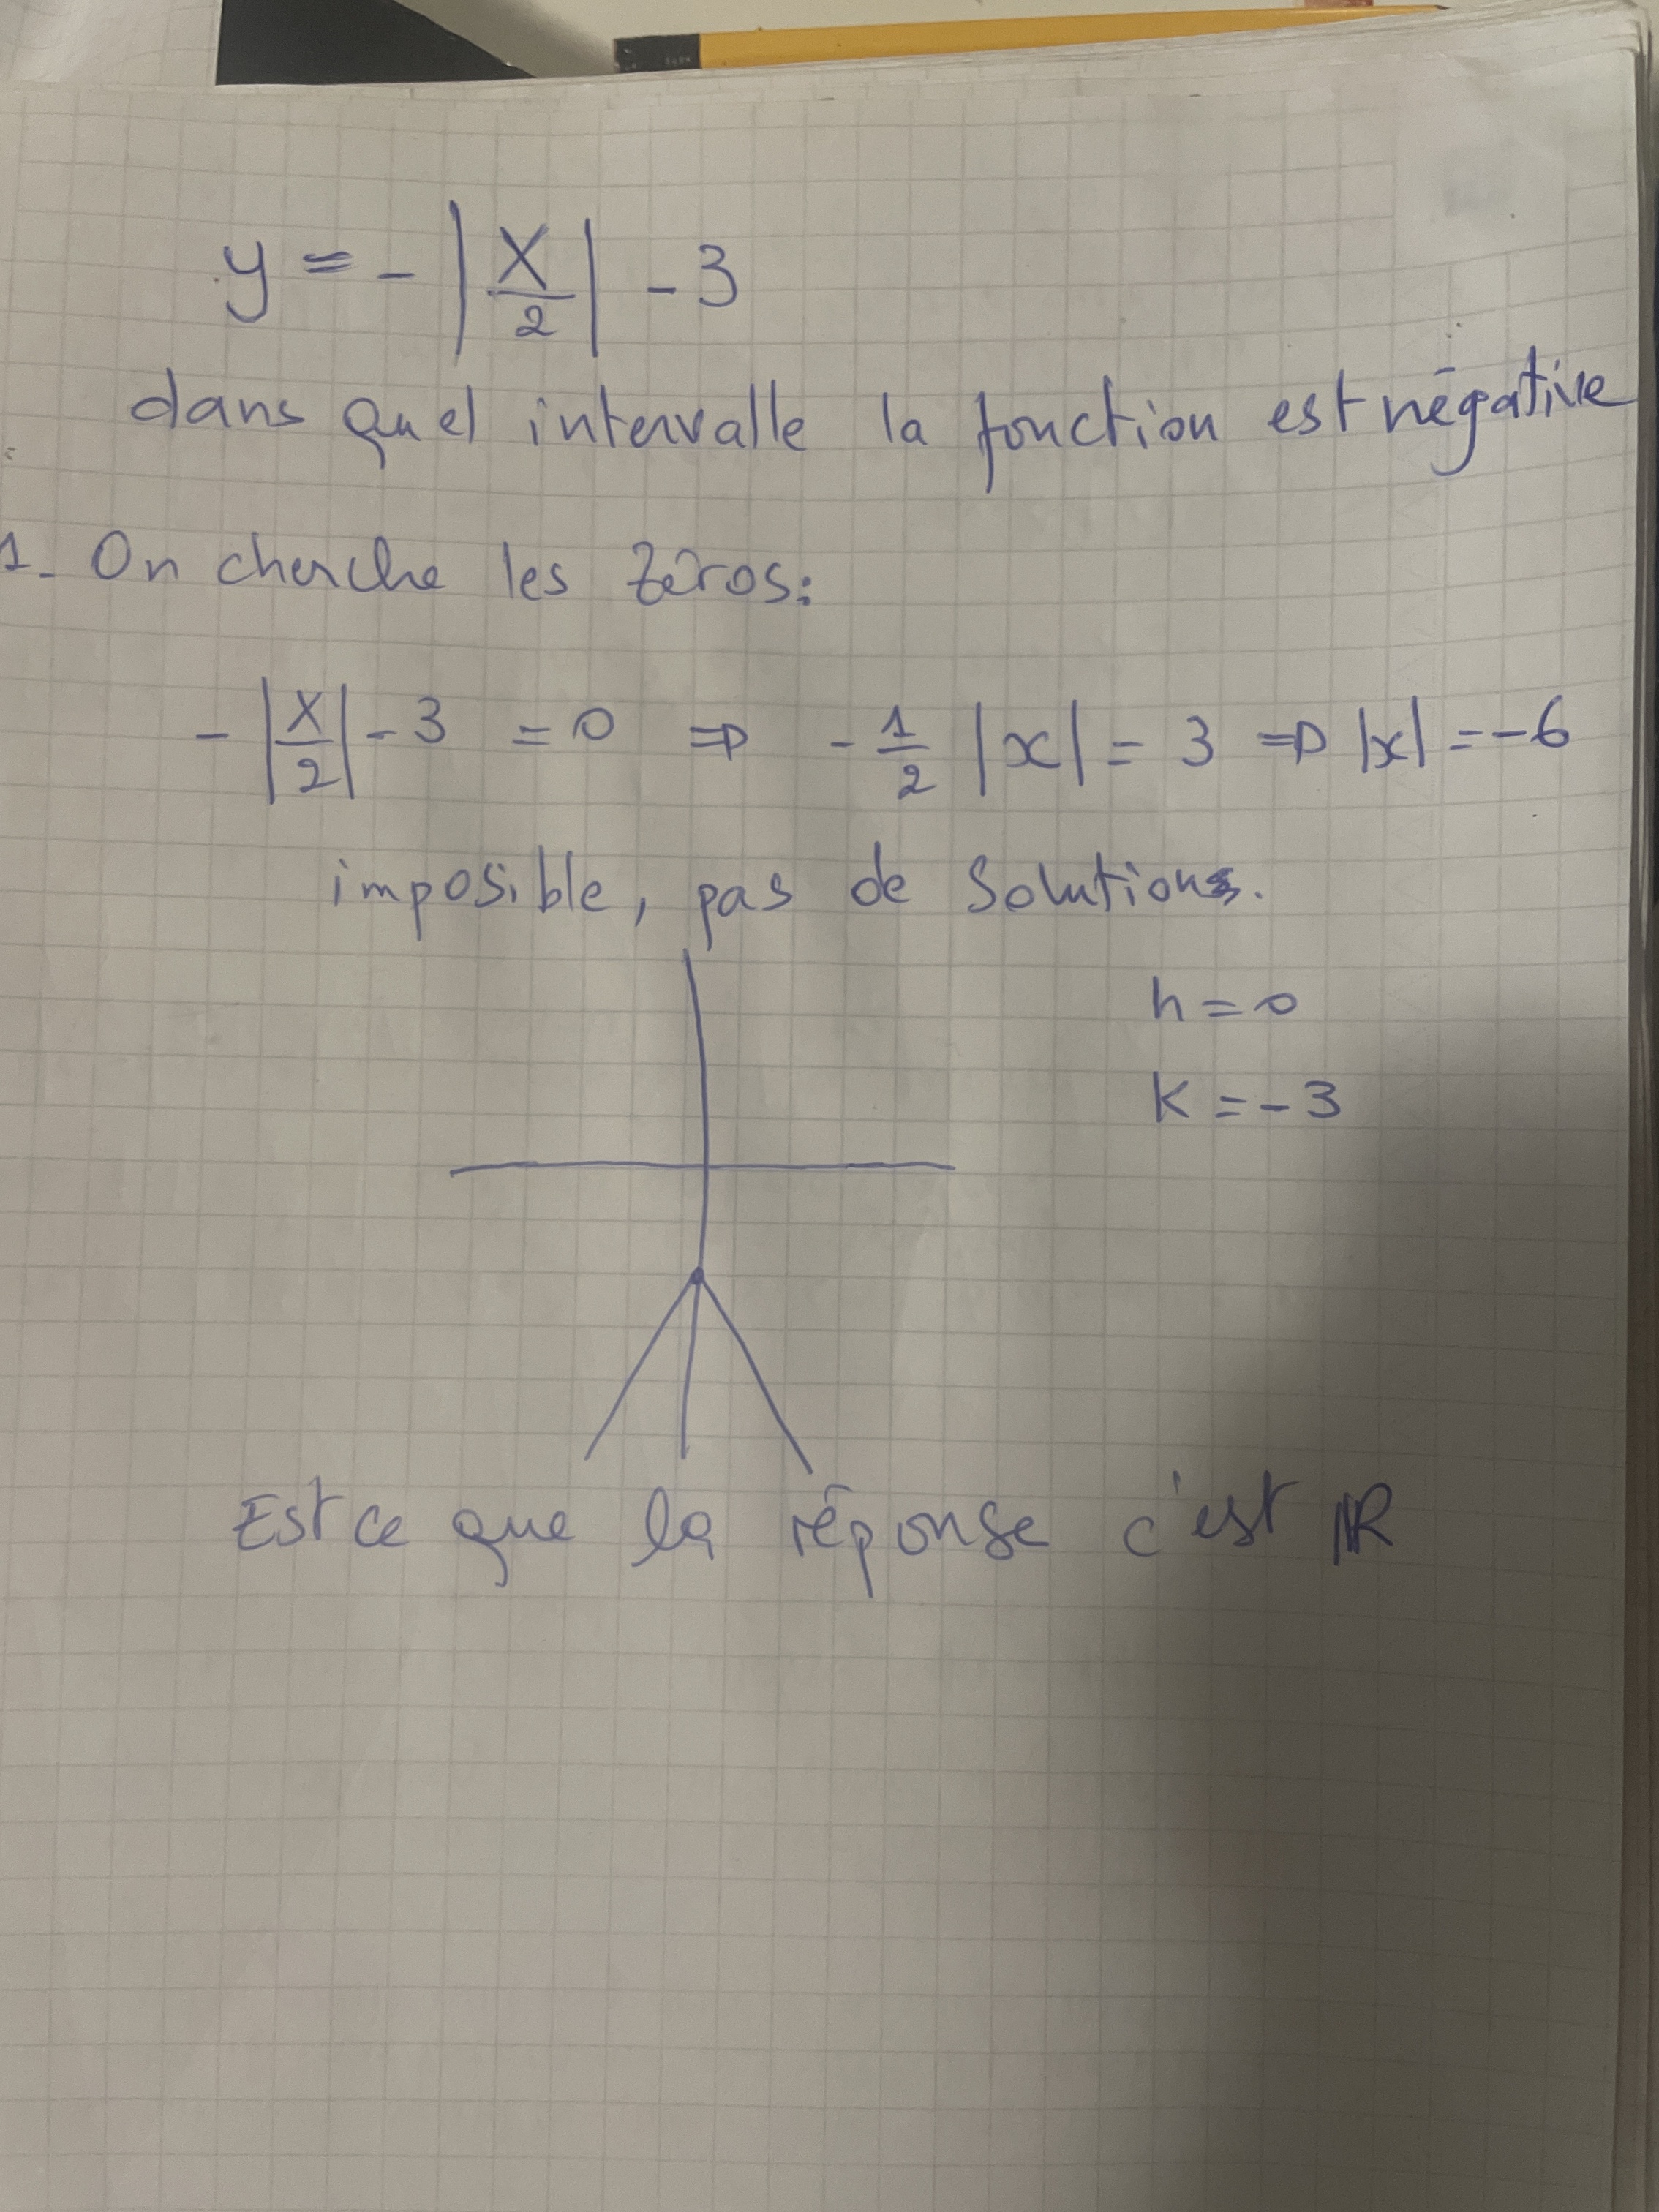 y = - |x/2| - 3
dans quel intervalle la fonction est négative
1. On cherche les zéros:
- |x/2| - 3 = 0 ⇒ - 1/2 |x| = 3 ⇒ |x| = -6
imposible, pas de solutions.
h = 0
K = -3
Est ce que la réponse c'est ℝ